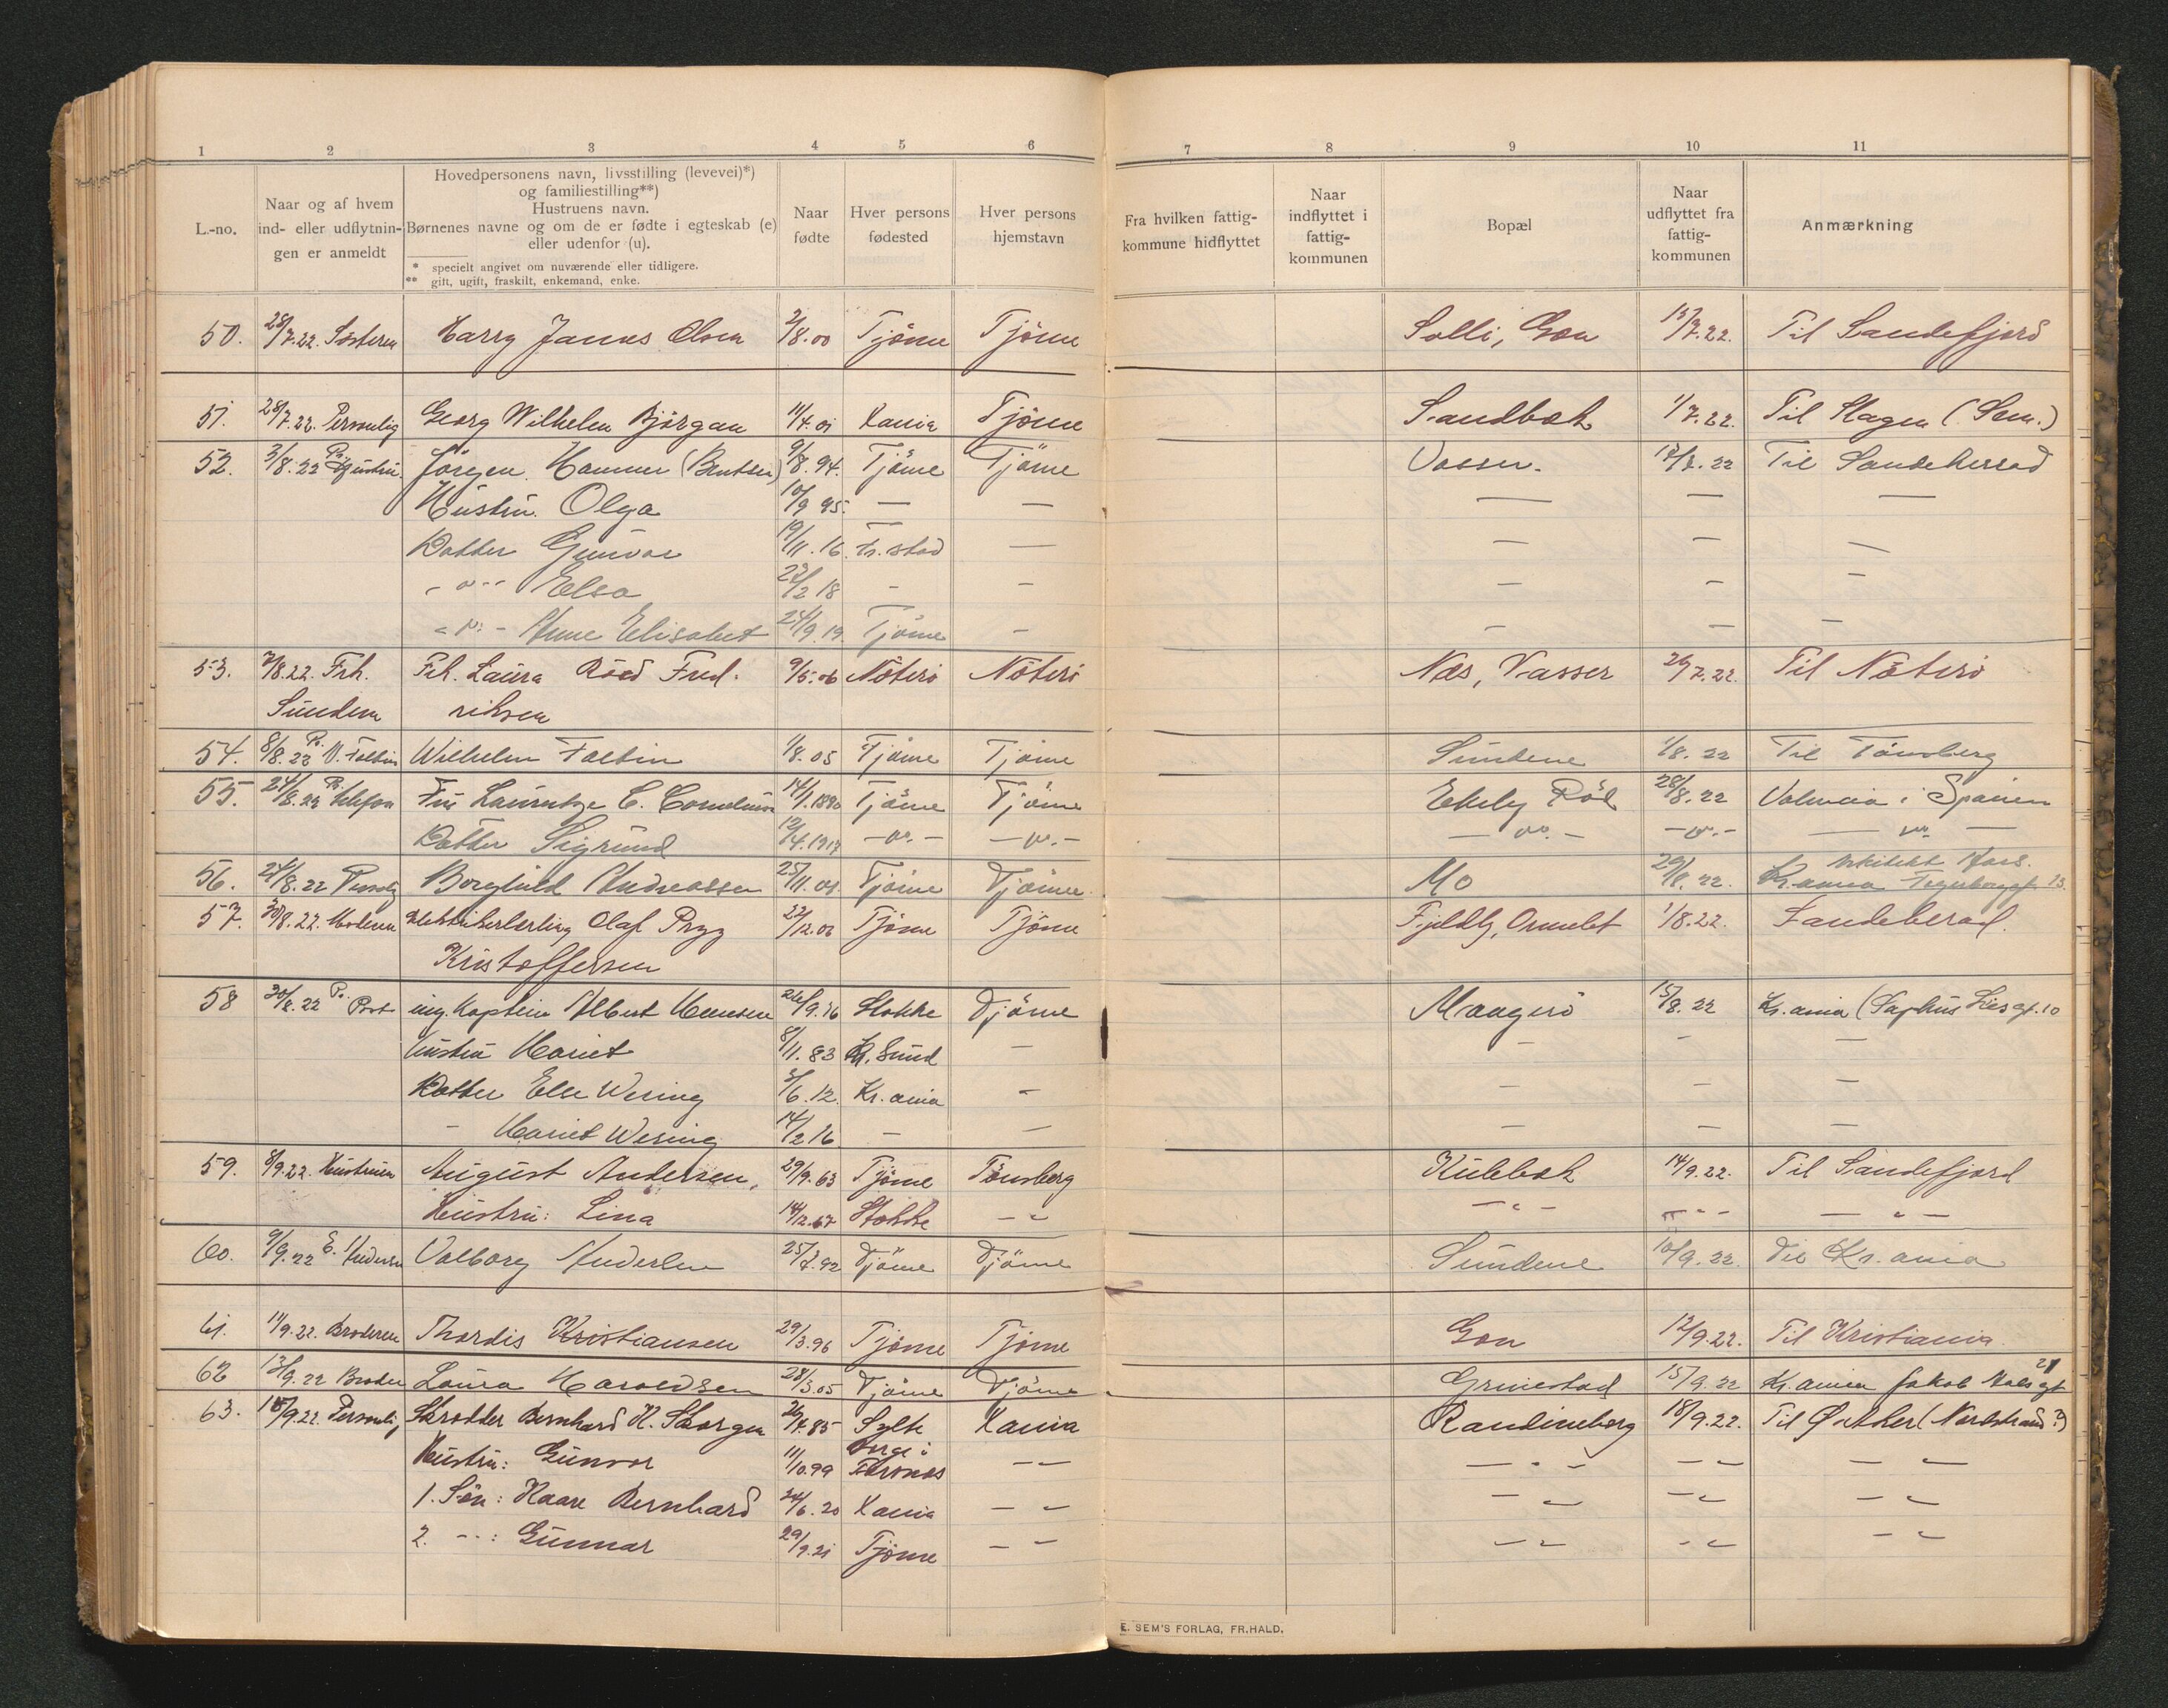 1 2 3 4 5 6 7 8 9 10 11
L.-no.
Naar og af hvem
ind- eller udflytnin-
gen er anmeldt
Hovedpersonens navn, livsstilling (levevei)*)
og familiestilling**)
Hustruens navn.
Børnenes navne og om de er fødte i egteskab (e)
eller udenfor (u).
* specielt angivet om nuværende eller tidligere.
** gift, ugift, fraskilt, enkemand, enke.
Naar
fødte
Hver persons
fødested
Hver persons
hjemstavn
Fra hvilken fattig-
kommune hidflyttet
Naar
indflyttet i
fattig-
kommunen
Bopæl
Naar
udflyttet fra
fattig-
kommunen
Anmærkning
50. 28/7.22. Søsteren Harry James Olsen 2/8.00 Tjöme Tjöme Solli, Gon 15/7.22. Til Sandefjord
51. 28/7.22. Personlig Georg Wilhelm Bjørgan 11/4.01 Kania Tjöme Sandbæk 1/7.22. Til Slagen (Sem.)
52. 2/8.22 Hustru. Jörgen Hammer (Bentsen) 9/8.94. Tjöme Tjöme Vasser. /7.22 Til Sandeherred
Hustru. Olga 10/9 95. — — — — —
Datter Gunvor 19/11.16. Fr.stad — — — —
- " - Elsa 22/2 18 - — — — —
- " - Anne Elisabet 24/9.19. Tjöme — — — —
53. 7/8.22. Frk. Frk. Laura Röed Fred- 9/5.06 Nöterö Nöterö Næs, Vasser 26/7.22. Til Nöterö
Sundem riksen
54. 8/8.22 V. Faltin Wilhelm Faltin 1/8.05 Tjöme Tjöme Sundene 1/8.22 Til Tönsberg
55. 24/8.22 Pr. telefon Fru Laurentze C. Cornelius 14/1.1890 Tjöme Tjöme Ekely Röd 28/8.22 Valencia i Spanien
Datter Sigrund 12/4.1917 - " - - " - - " - - " - - " -
56. 24/8.22 Personlig Borghild Andreassen 25/11.01. Tjöme Tjöme Mo 29/8.22. Arkitekt Hars.
Kr.ania 13.
57. 30/8.22. Moderen Elektrikerlærling Olaf Pryz 22/12.06 Tjöme Tjöme Fjeldly, Ormelet 1/8.22. Sandeherad.
Kristoffersen
58 30/8.22 Pr. Post ing. Kaptein Albert Meensen 26/9.76 Stokke Tjöme Maagerö 15/8.22 Kr.ania ( gt. 10
Hustru Mariet 8/11.83 Kr. Sund — — — —
Datter Else Wesing 3/6.12. Kr.ania — — — —
- Mariet Wesing 14/2 16 — — — — —
59. 8/9.22. Hustruen August Andersen, 29/9.63 Tjöme Tönsberg Kulebæk 14/9.22. Til Sandefjord
Hustru: Lina 14/12.67 Stokke - " - " - - " - - " -
60. 9/9.22 E. Andersen Valborg Andersen 25/7.92 Tjöme Tjöme Sundene 10/9.22. Til Kr.ania
61. 11/9.22. Broderen Thordis Kristiansen 29/3.96 Tjöme Tjöme Gon 12/9.22. Til Kristiania.
62 13/9.22 Broder Laura Haroldsen 28/3.05 Tjöme Tjöme Grimestad 15/9.22 Kr.ania Jakob Aals gt 21
63. 18/9.22. Personlig Skrædder Bernhard H. Skorgen 26/4.85 Sylte Kania Randineborg 18/9.22. Til Østker (Nordstrand?)
Hustru: Gunvor 11/10.99 Borge i
- " - " - - " - " - "
1. Sön: Kaare Bernhard 24/6.20 Kania - " - " - " - "
2. - " -: Gunnar 29/9.21 Tjöme - " - " - " - "
E. SEM'S FORLAG, FR.HALD.